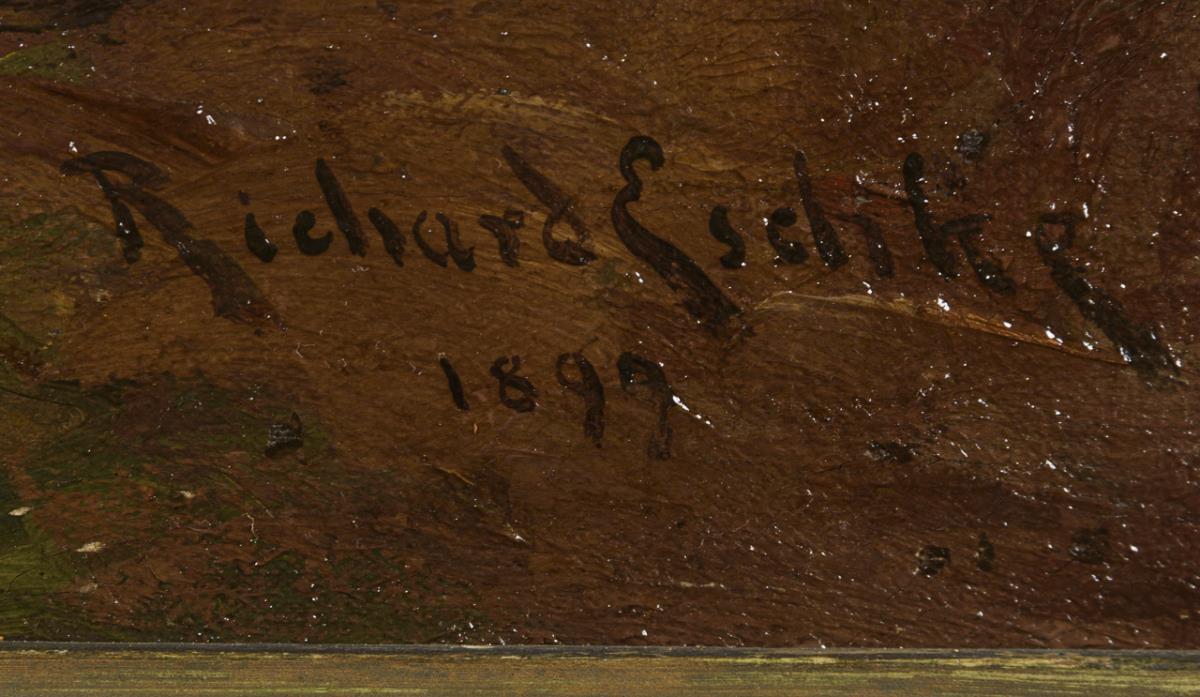 Richard Eschke
1899